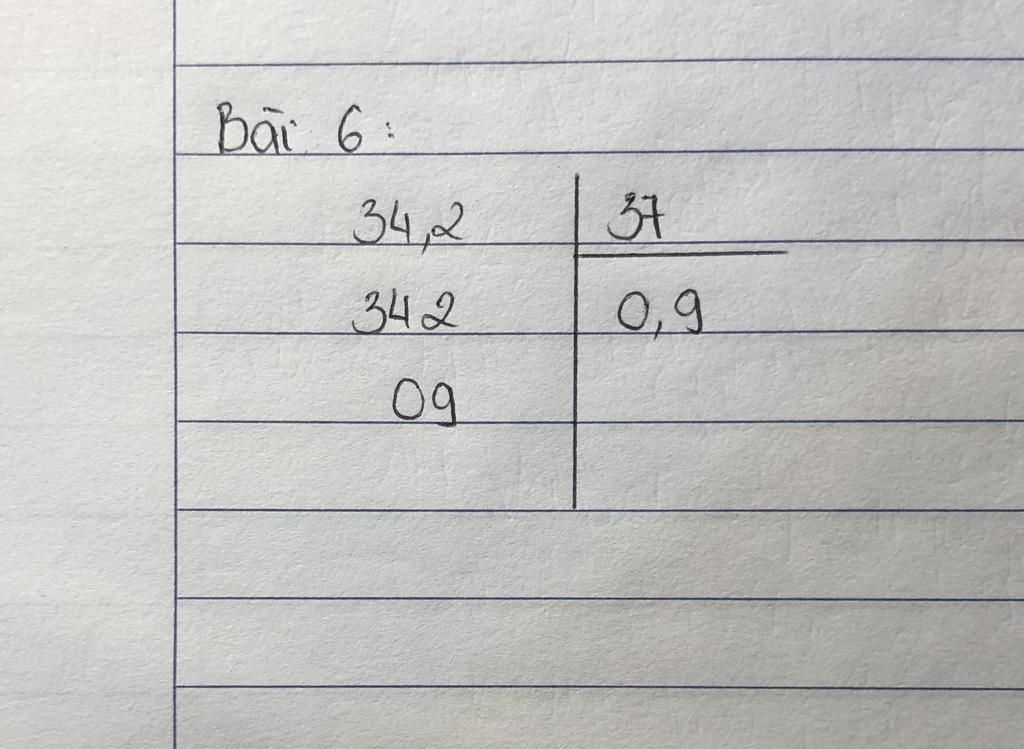 Bài 6:
34,2 37
342 0,9
09